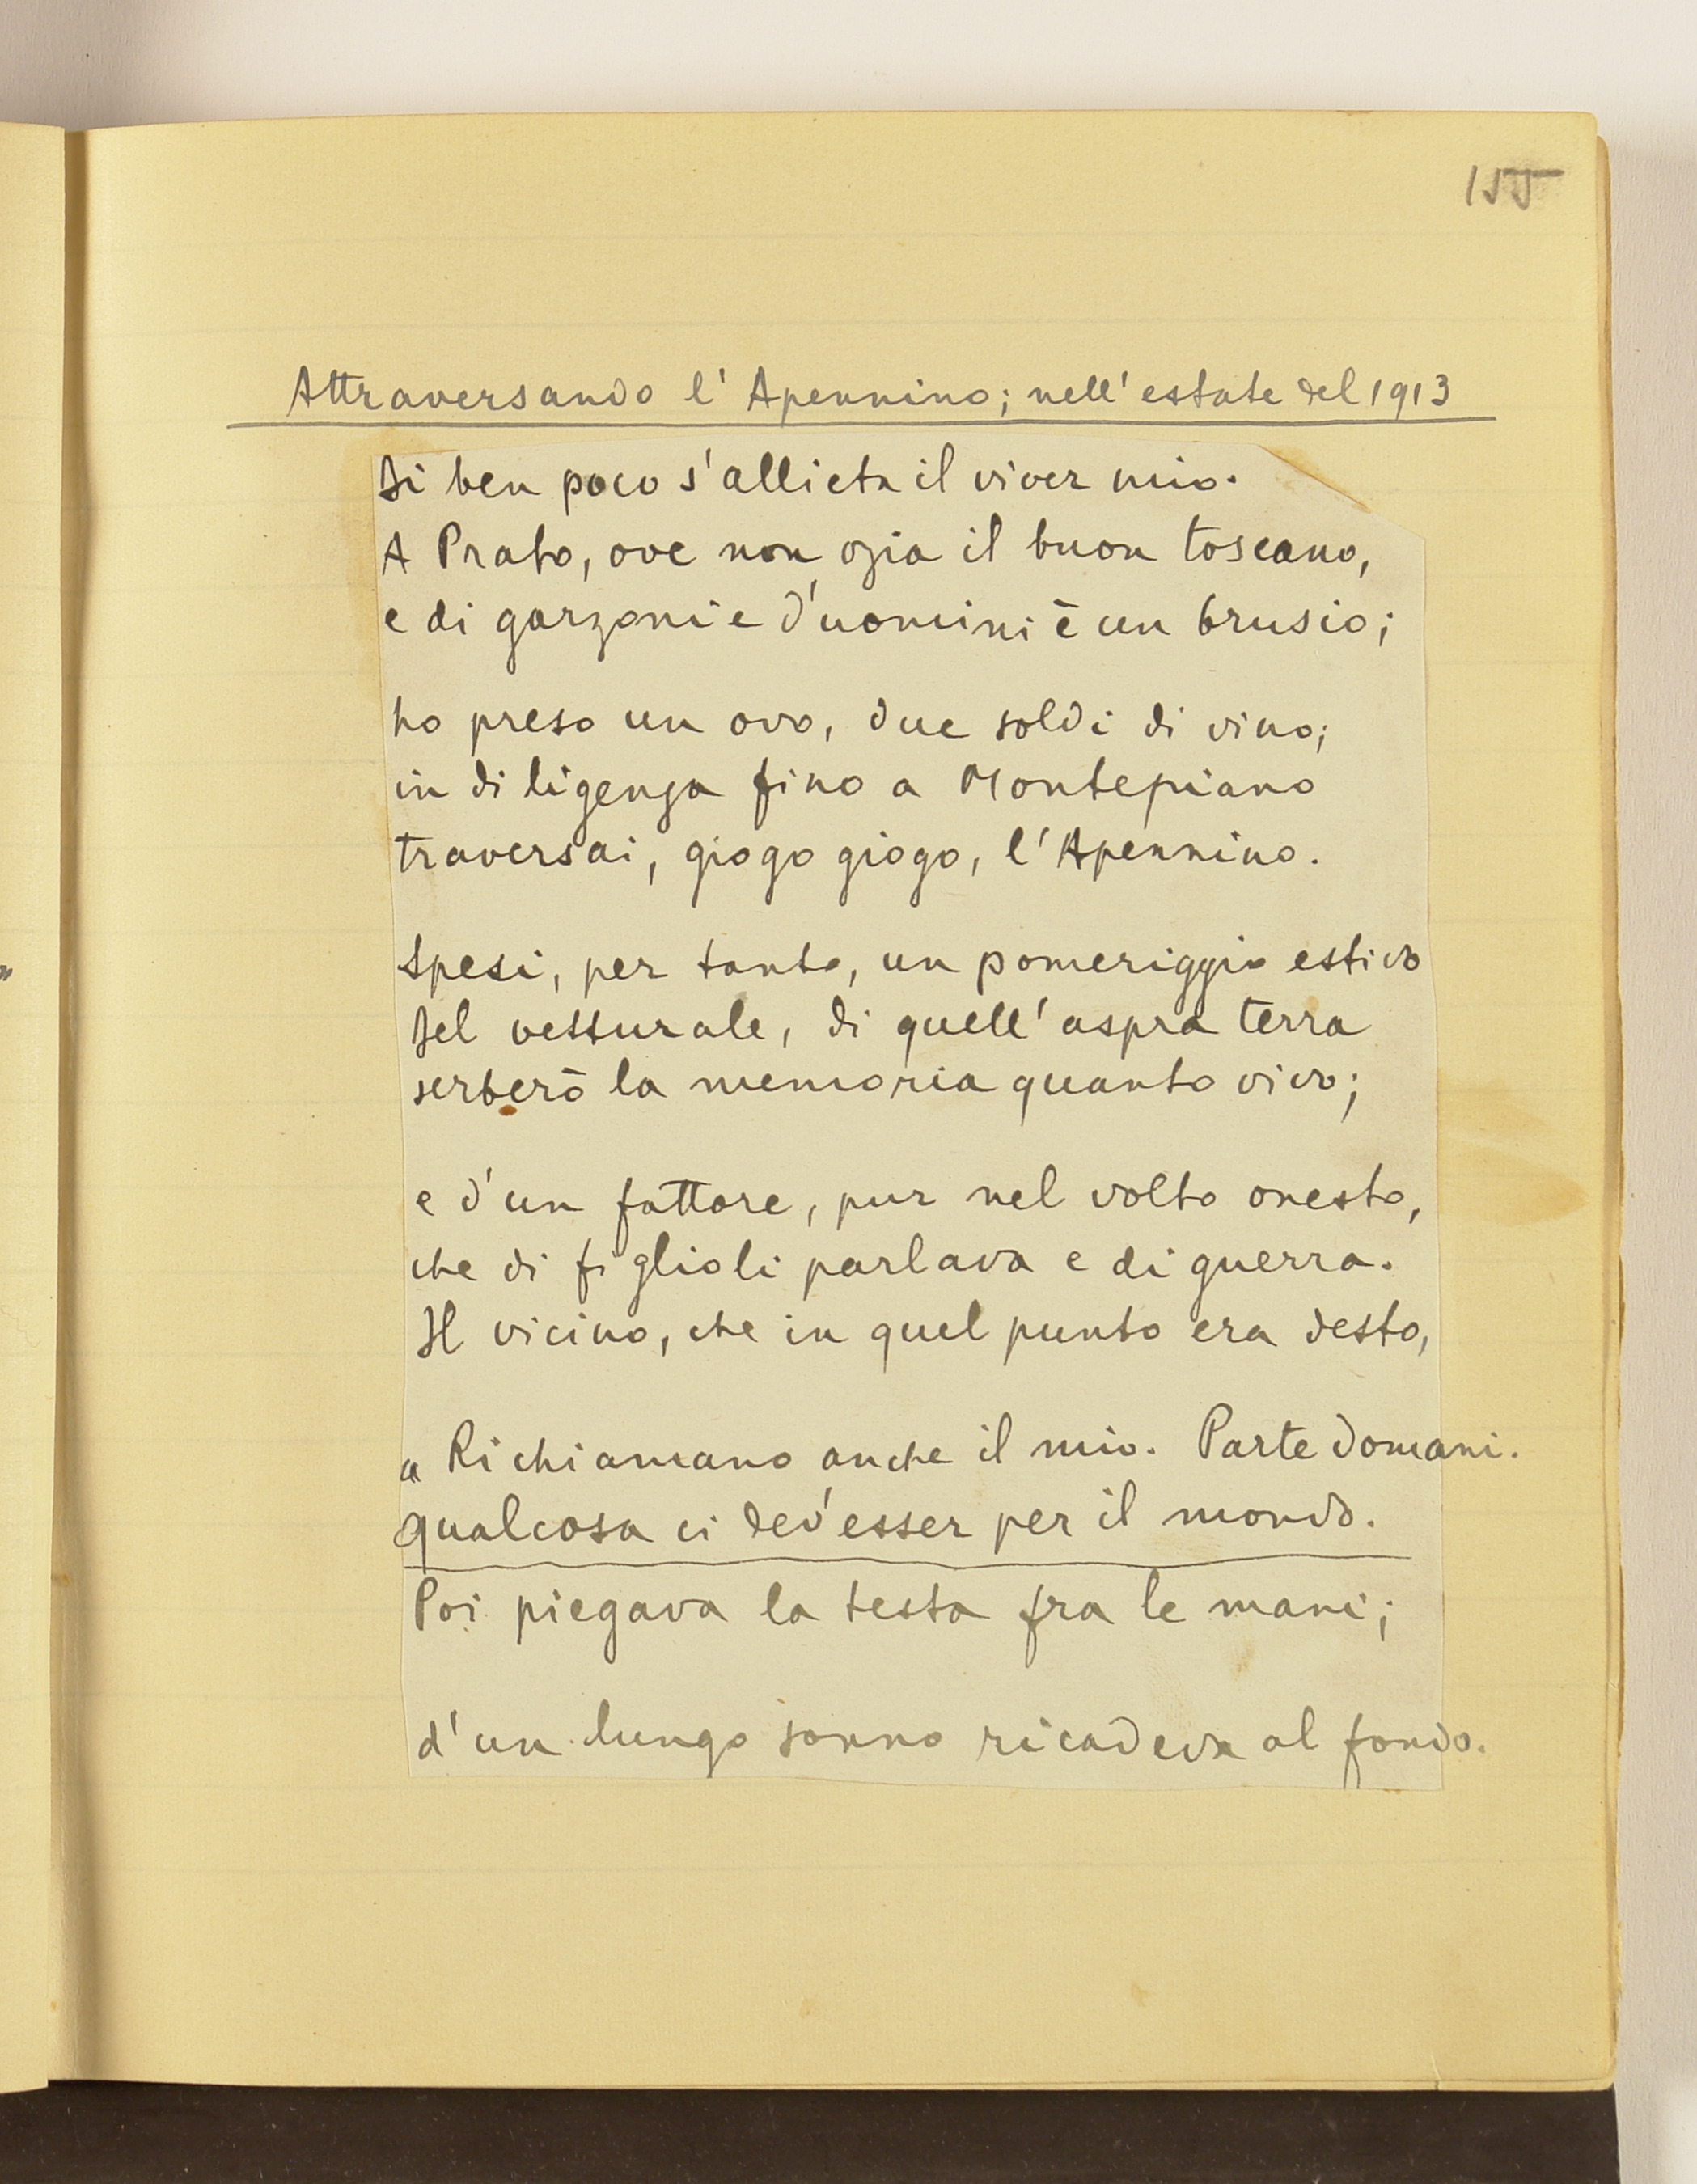 155
Attraversando l'Apennino; nell'estate del 1913
Di ben poco s'allieta il viver mio.
A Prato, ove non ozia il buon toscano,
e di garzoni e d'uomini è un brusio;
ho preso un ovo, due soldi di vino;
in diligenza fino a Montepiano
traversai, giogo giogo, l'Apennino.
Spesi, per tanto, un pomeriggio estivo
Del vetturale, di quell'aspra terra
serberò la memoria quanto vivo;
e d'un fattore, pur nel volto onesto,
che di figlioli parlava e di guerra.
Il vicino, che in quel punto era desto,
"Richiamano anche il mio. Parte domani.
Qualcosa ci dev'esser per il mondo.
Poi piegava la testa fra le mani;
d'un lungo sonno ricadeva al fondo.